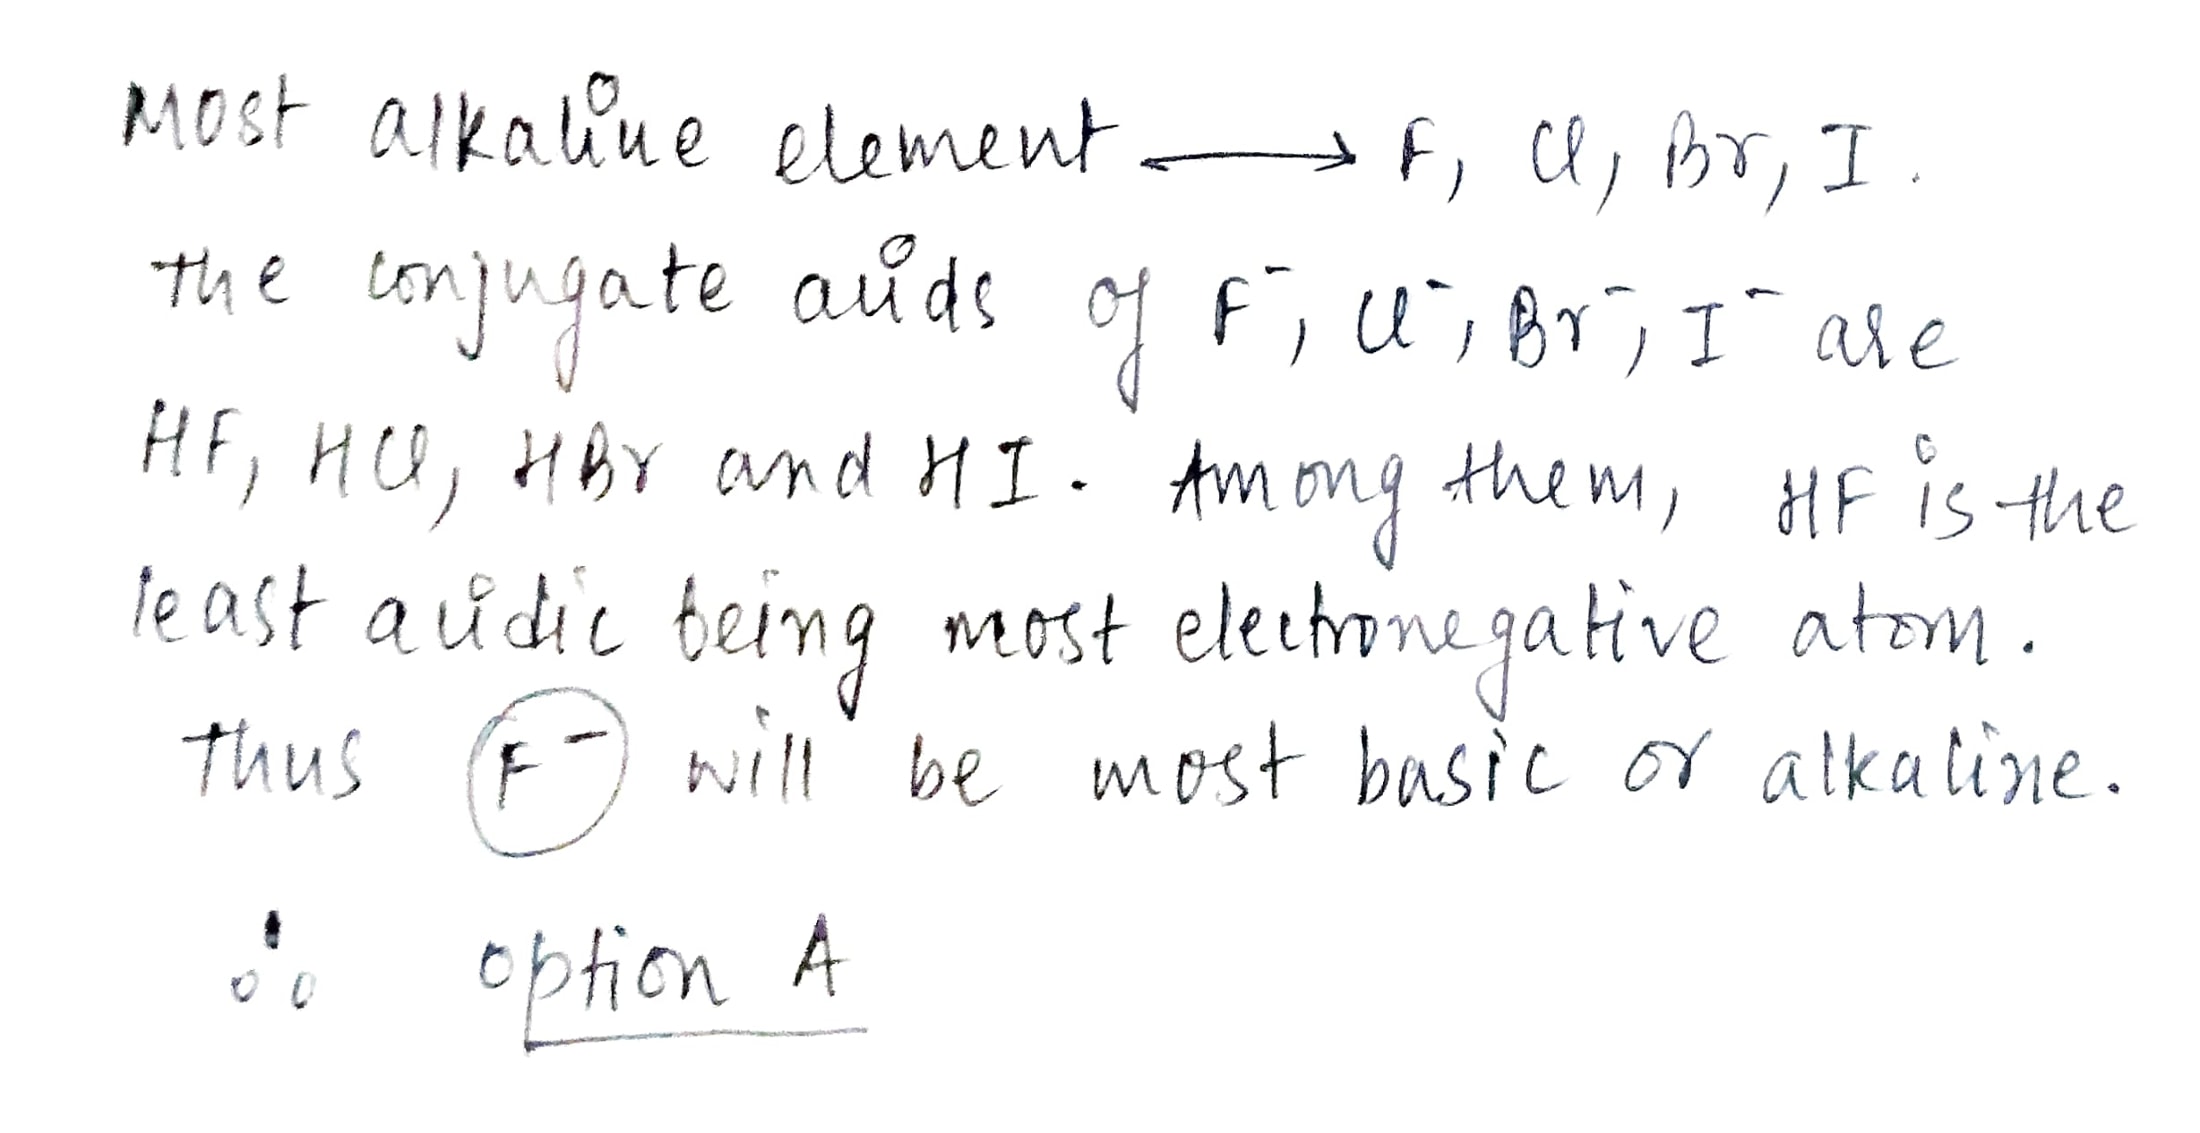 Most alkaline element → F, Cl, Br, I.
The conjugate acids of F⁻, Cl⁻, Br⁻, I⁻ are
HF, HCl, HBr and HI. Among them, HF is the
least acidic being most electronegative atom.
Thus F⁻ will be most basic or alkaline.
∴ option A